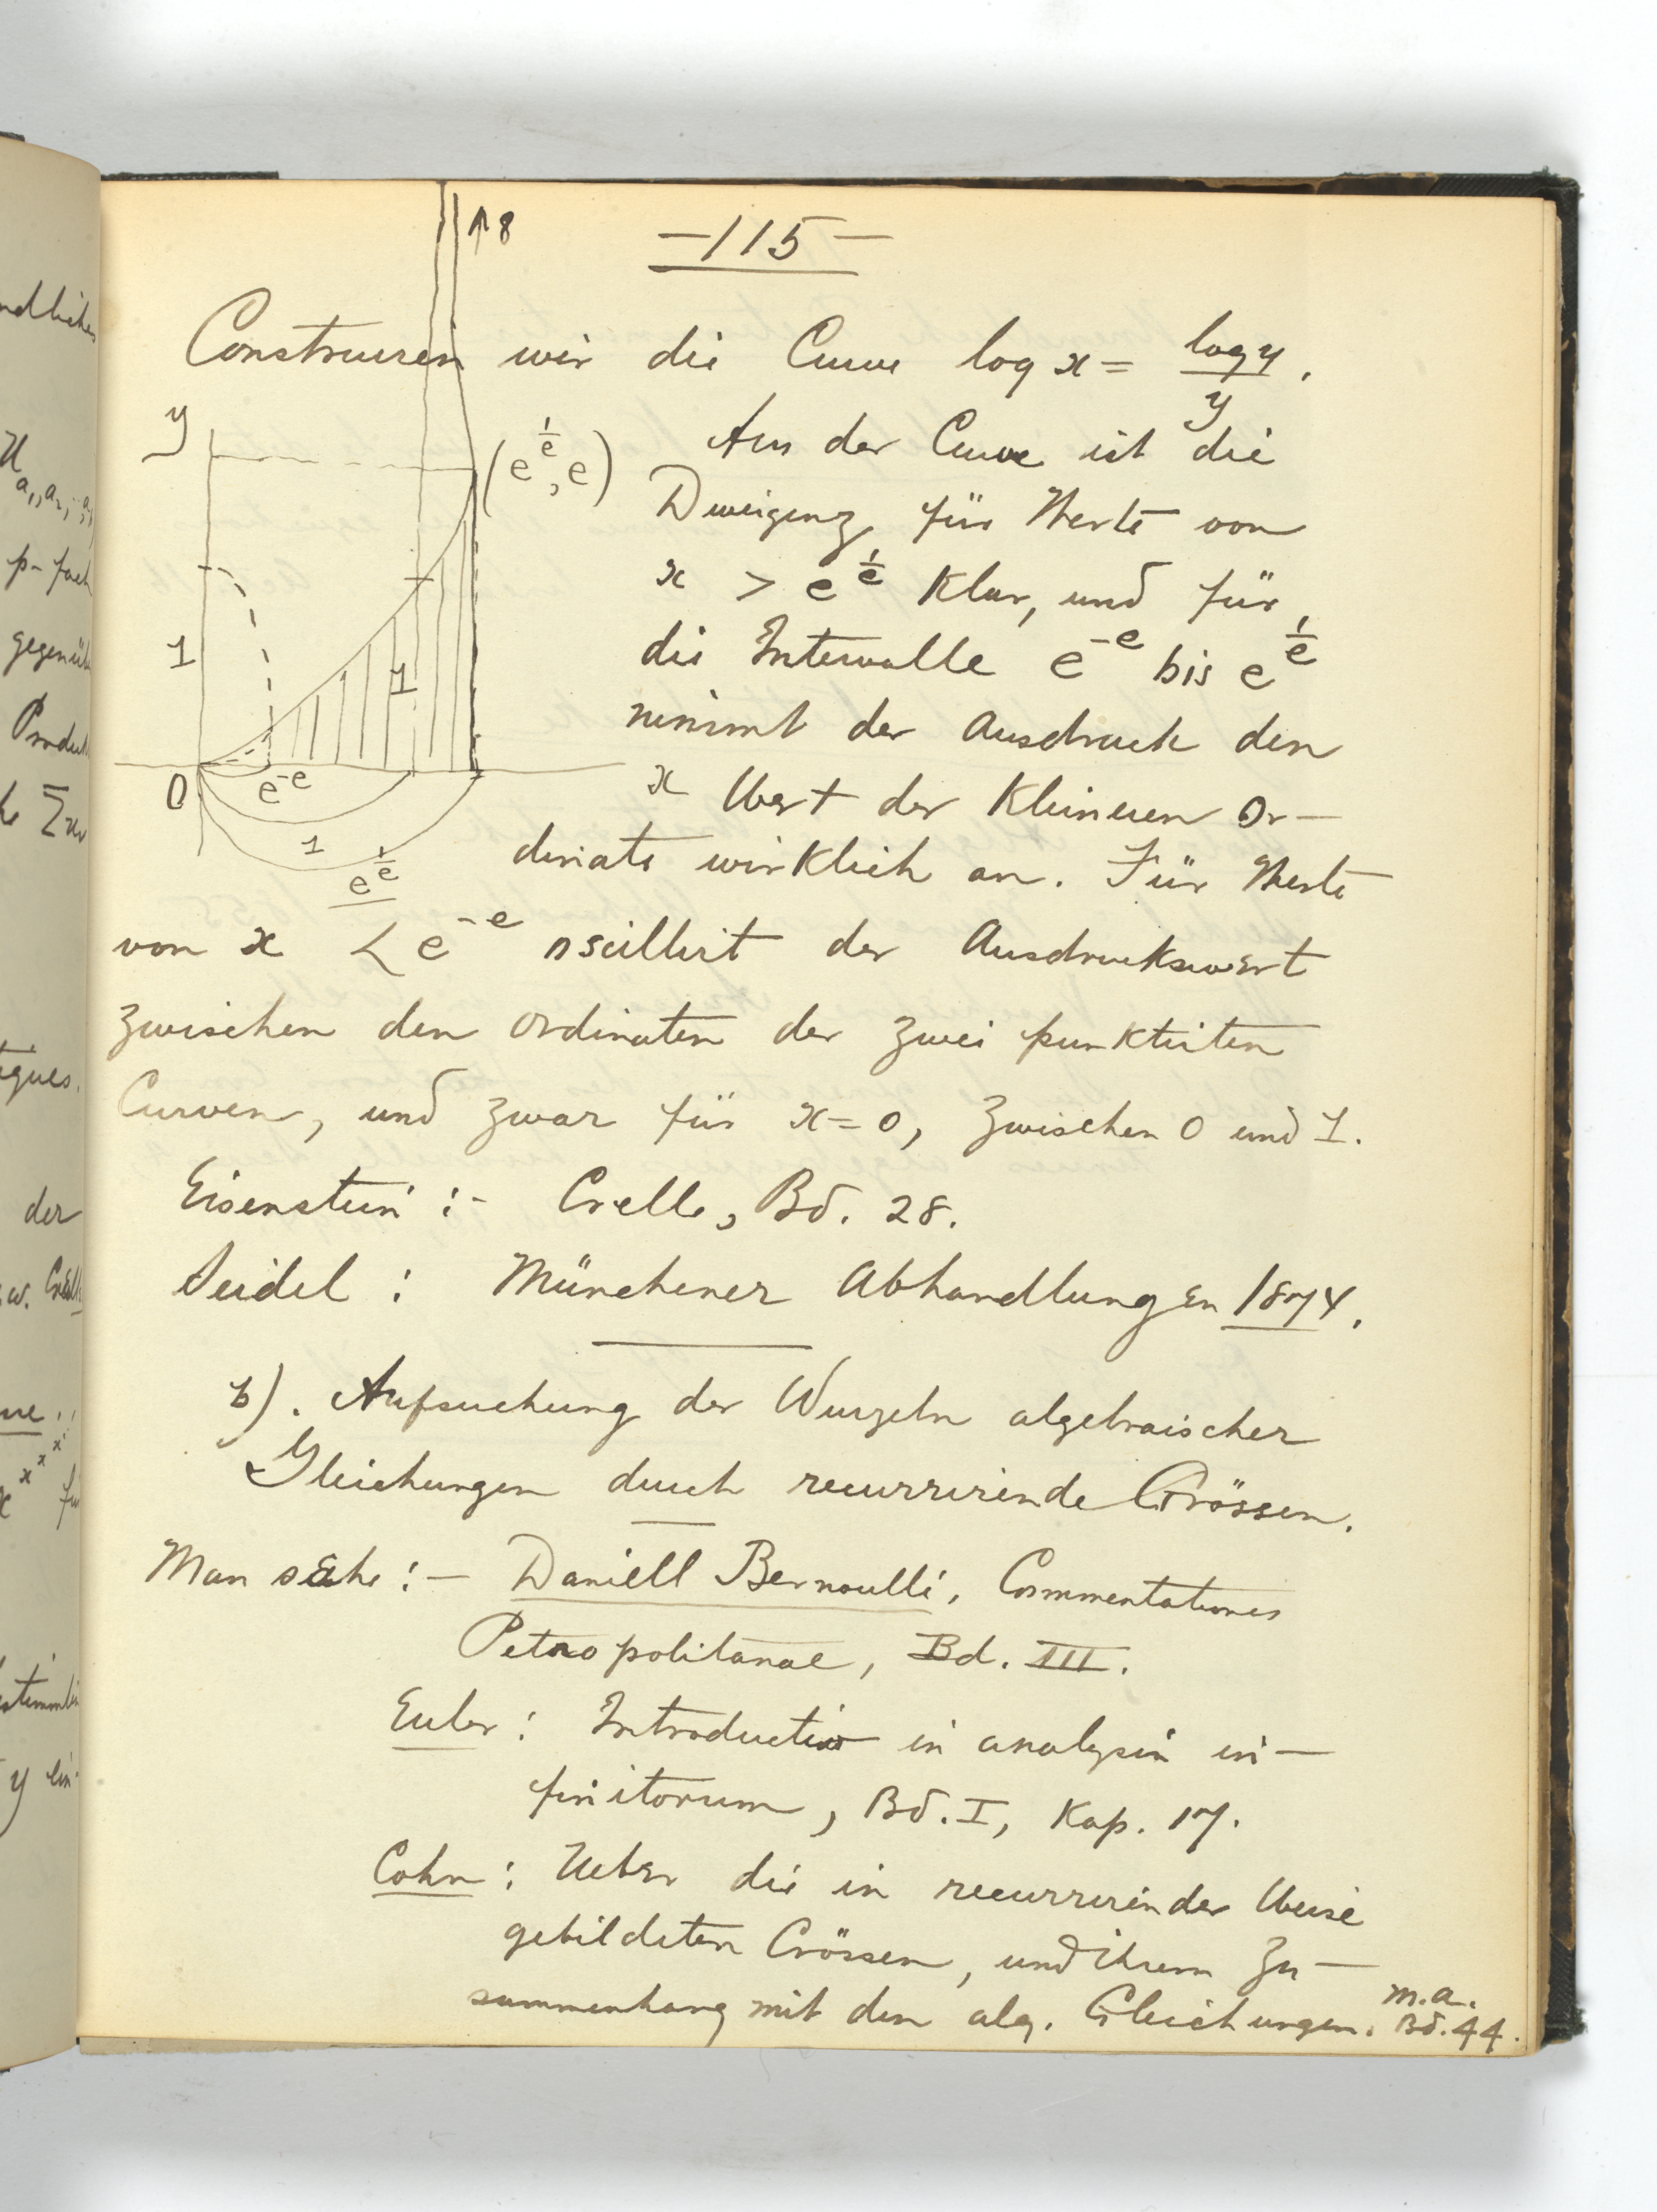 —115—
↑8
Construiren wir die Curve log x = log y / y.
y
(e^{1/e}, e)
Aus der Curve ist die
Divergenz für Werte von
x > e^{1/e} Klar, und für
1
1
die Intervalle e^{-e} bis e^{1/e}
nimmt der Ausdruck den
0
e^{-e}
x Wert der Kleineren Or-
1
e^{1/e}
dinate wirklich an. Für Werte
von x < e^{-e} oscillirt der Ausdruckswert
zwischen den Ordinaten der zwei punktirten
Curven, und zwar für x=0, zwischen 0 und 1.
Eisenstein :- Crelle, Bd. 28.
Seidel : Münchener Abhandlungen 1874.
b). Aufsuchung der Wurzeln algebraischer
Gleichungen durch recurrirende Grössen.
Man sehe :- Daniell Bernoulli, Commentationes
Petropolitanae, Bd. III.
Euler : Introductio in analysin in-
finitorum, Bd. I, Kap. 17.
Cohn : Ueber die in recurrirender Weise
gebildeten Grössen, und ihrem Zu-
sammenhang mit den alg. Gleichungen. m.a. Bd. 44.
ndlichen
U a₁,a₂,
p-fach
Σ
tiques.
der